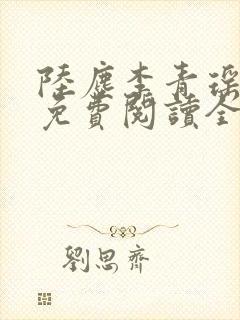 陸塵李青瑤
免費閱讀全
劉思齊